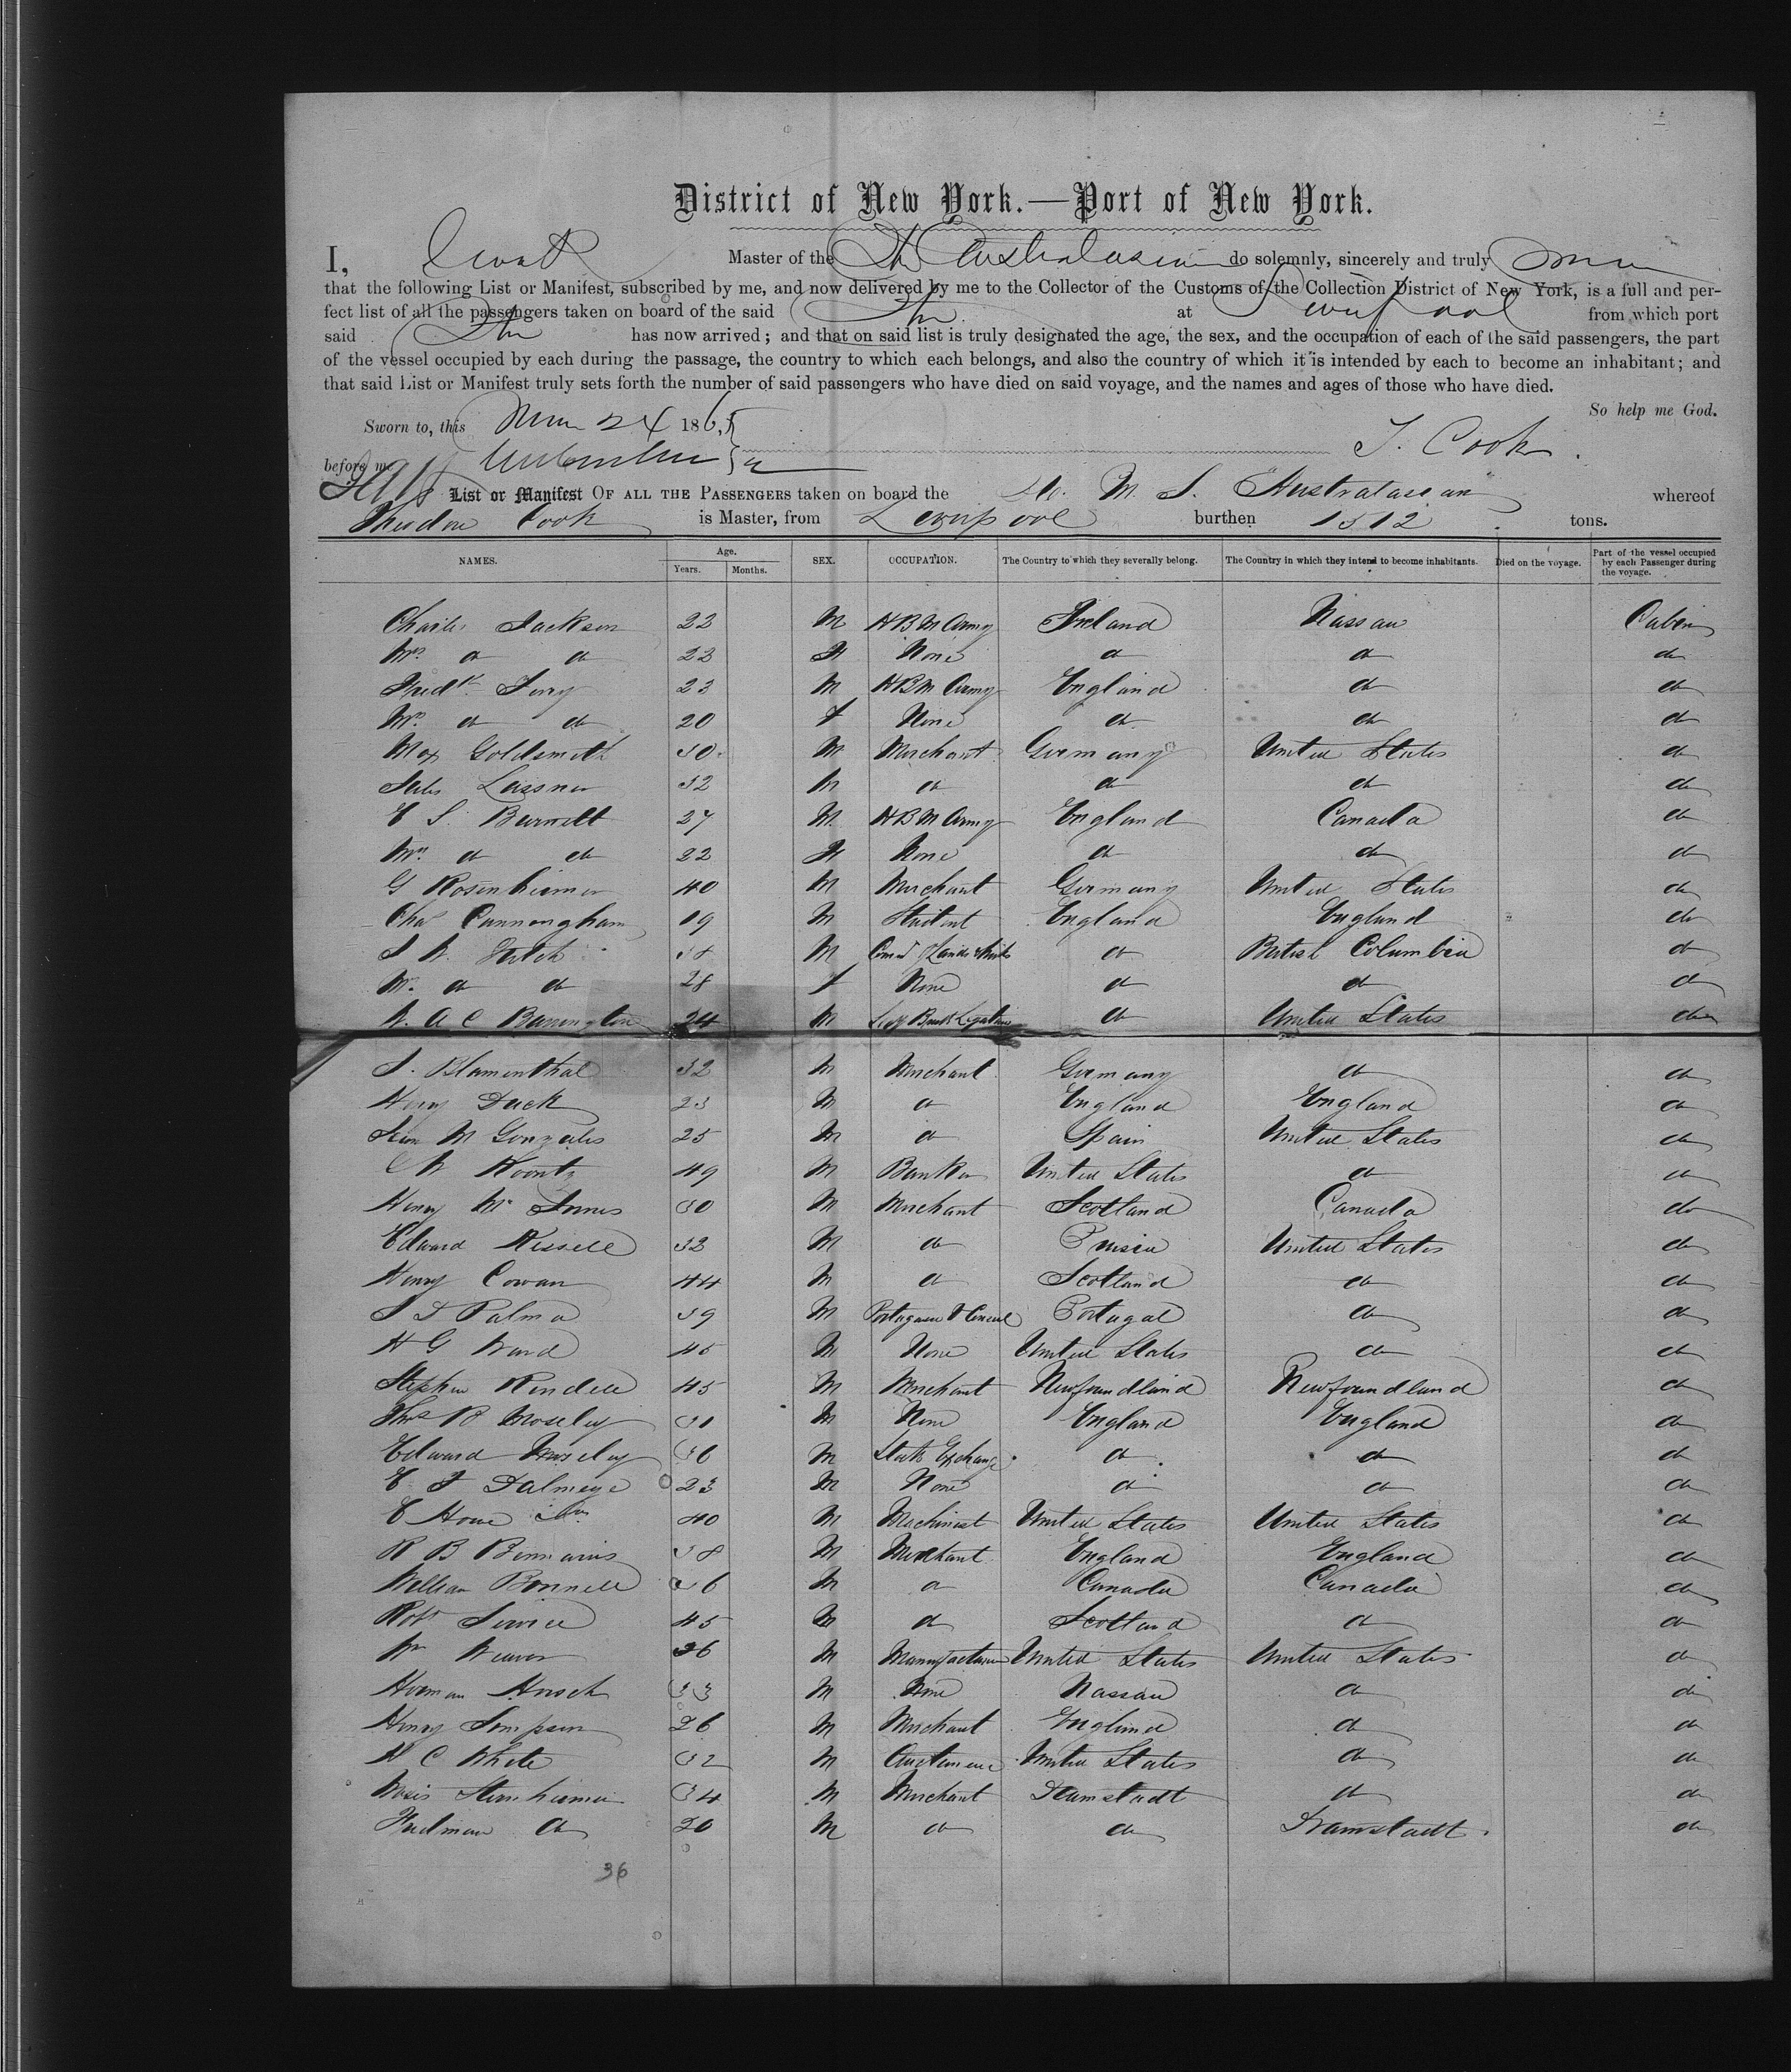 District of New York.—Port of New York.
I, Cook Master of the Str Australasian do solemnly, sincerely and truly
that the following List or Manifest, subscribed by me, and now delivered by me to the Collector of the Customs of the Collection District of New York, is a full and per-
fect list of all the passengers taken on board of the said Str at Liverpool from which port
said Str has now arrived; and that on said list is truly designated the age, the sex, and the occupation of each of the said passengers, the part
of the vessel occupied by each during the passage, the country to which each belongs, and also the country of which it is intended by each to become an inhabitant; and
that said List or Manifest truly sets forth the number of said passengers who have died on said voyage, and the names and ages of those who have died.
So help me God.
Sworn to, this 24 1865
before me T. Cook
List or Manifest OF ALL THE PASSENGERS taken on board the M. S. Australasian whereof
Theodore Cook is Master, from Liverpool burthen 1512 tons.
NAMES. Age. Years. Months. SEX. OCCUPATION. The Country to which they severally belong. The Country in which they intend to become inhabitants. Died on the voyage. Part of the vessel occupied by each Passenger during the voyage.
Charles Jackson 22 M H B M Army Ireland Nassau Cabin
Mrs do do 22 F None do do do
Fredk 23 M H B M Army England do do
Mrs do do 20 f None do do do
Max Goldsmith 30 M Merchant Germany United States do
Lassner 32 M do do do do
E S. Burnett 27 M H B M Army England Canada do
Mrs do do 22 F None do do do
G Rosenheimer 40 M Merchant Germany United States do
Chas Cunningham 19 M Student England England do
38 M do British Columbia do
Mrs do do 28 f None do do do
W. A C Barrington 24 M do United States do
S. Blumenthal 32 M Merchant Germany do do
Henry Duck 23 M do England England do
M Gonzales 25 M do Spain United States do
Koontz 49 M Banker United States do do
Henry Mc Innes 30 M Merchant Scotland Canada do
Edward Kissell 32 M do Prussia United States do
Henry Cowan 44 M do Scotland do do
Palma 39 M Portuguese V Consul Portugal do do
H G Ward 45 M None United States do do
Stephen Rendell 45 M Merchant Newfoundland Newfoundland do
Thos B Moseley 31 M None England England do
Edward Moseley 36 M Stock Exchange do do do
E F Dalmeye 23 M None do do do
E Howe Jun 40 M Machinist United States United States do
R B 38 M Merchant England England do
William Bonnell 36 M do Canada Canada do
Robt Service 45 M do Scotland do do
Wm Weaver 36 M Manufacturer United States United States do
Herman Hirsch 33 M None Nassau do do
Henry Simpson 26 M Merchant England do do
H C White 32 M United States do do
Moses Sternheimer 34 M Merchant Darmstadt do do
do 20 M do do Darmstadt do
36